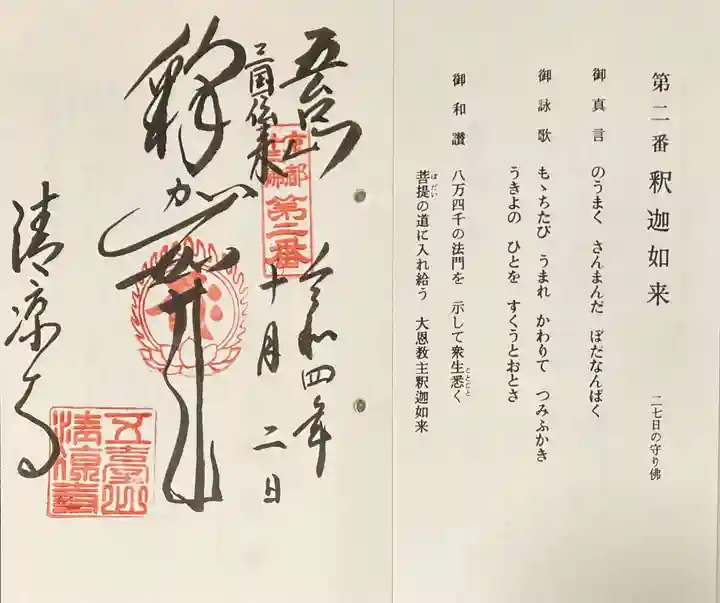 第二番 釈迦如来 二七日の守り佛
御真言 のうまく さんまんだ ぼだなんばく
御詠歌 もゝちたび うまれ かわりて つみふかき
うきよの ひとを すくうとおとさ
御和讃 八万四千の法門を 示して衆生悉く
ことごと
菩提の道に入れ給う 大恩教主釈迦如来
ぼだい
五台山
三国伝来
京都
十三佛
第二番
令和四年
十月二日
釋迦如来
清凉寺
五臺山
清凉寺